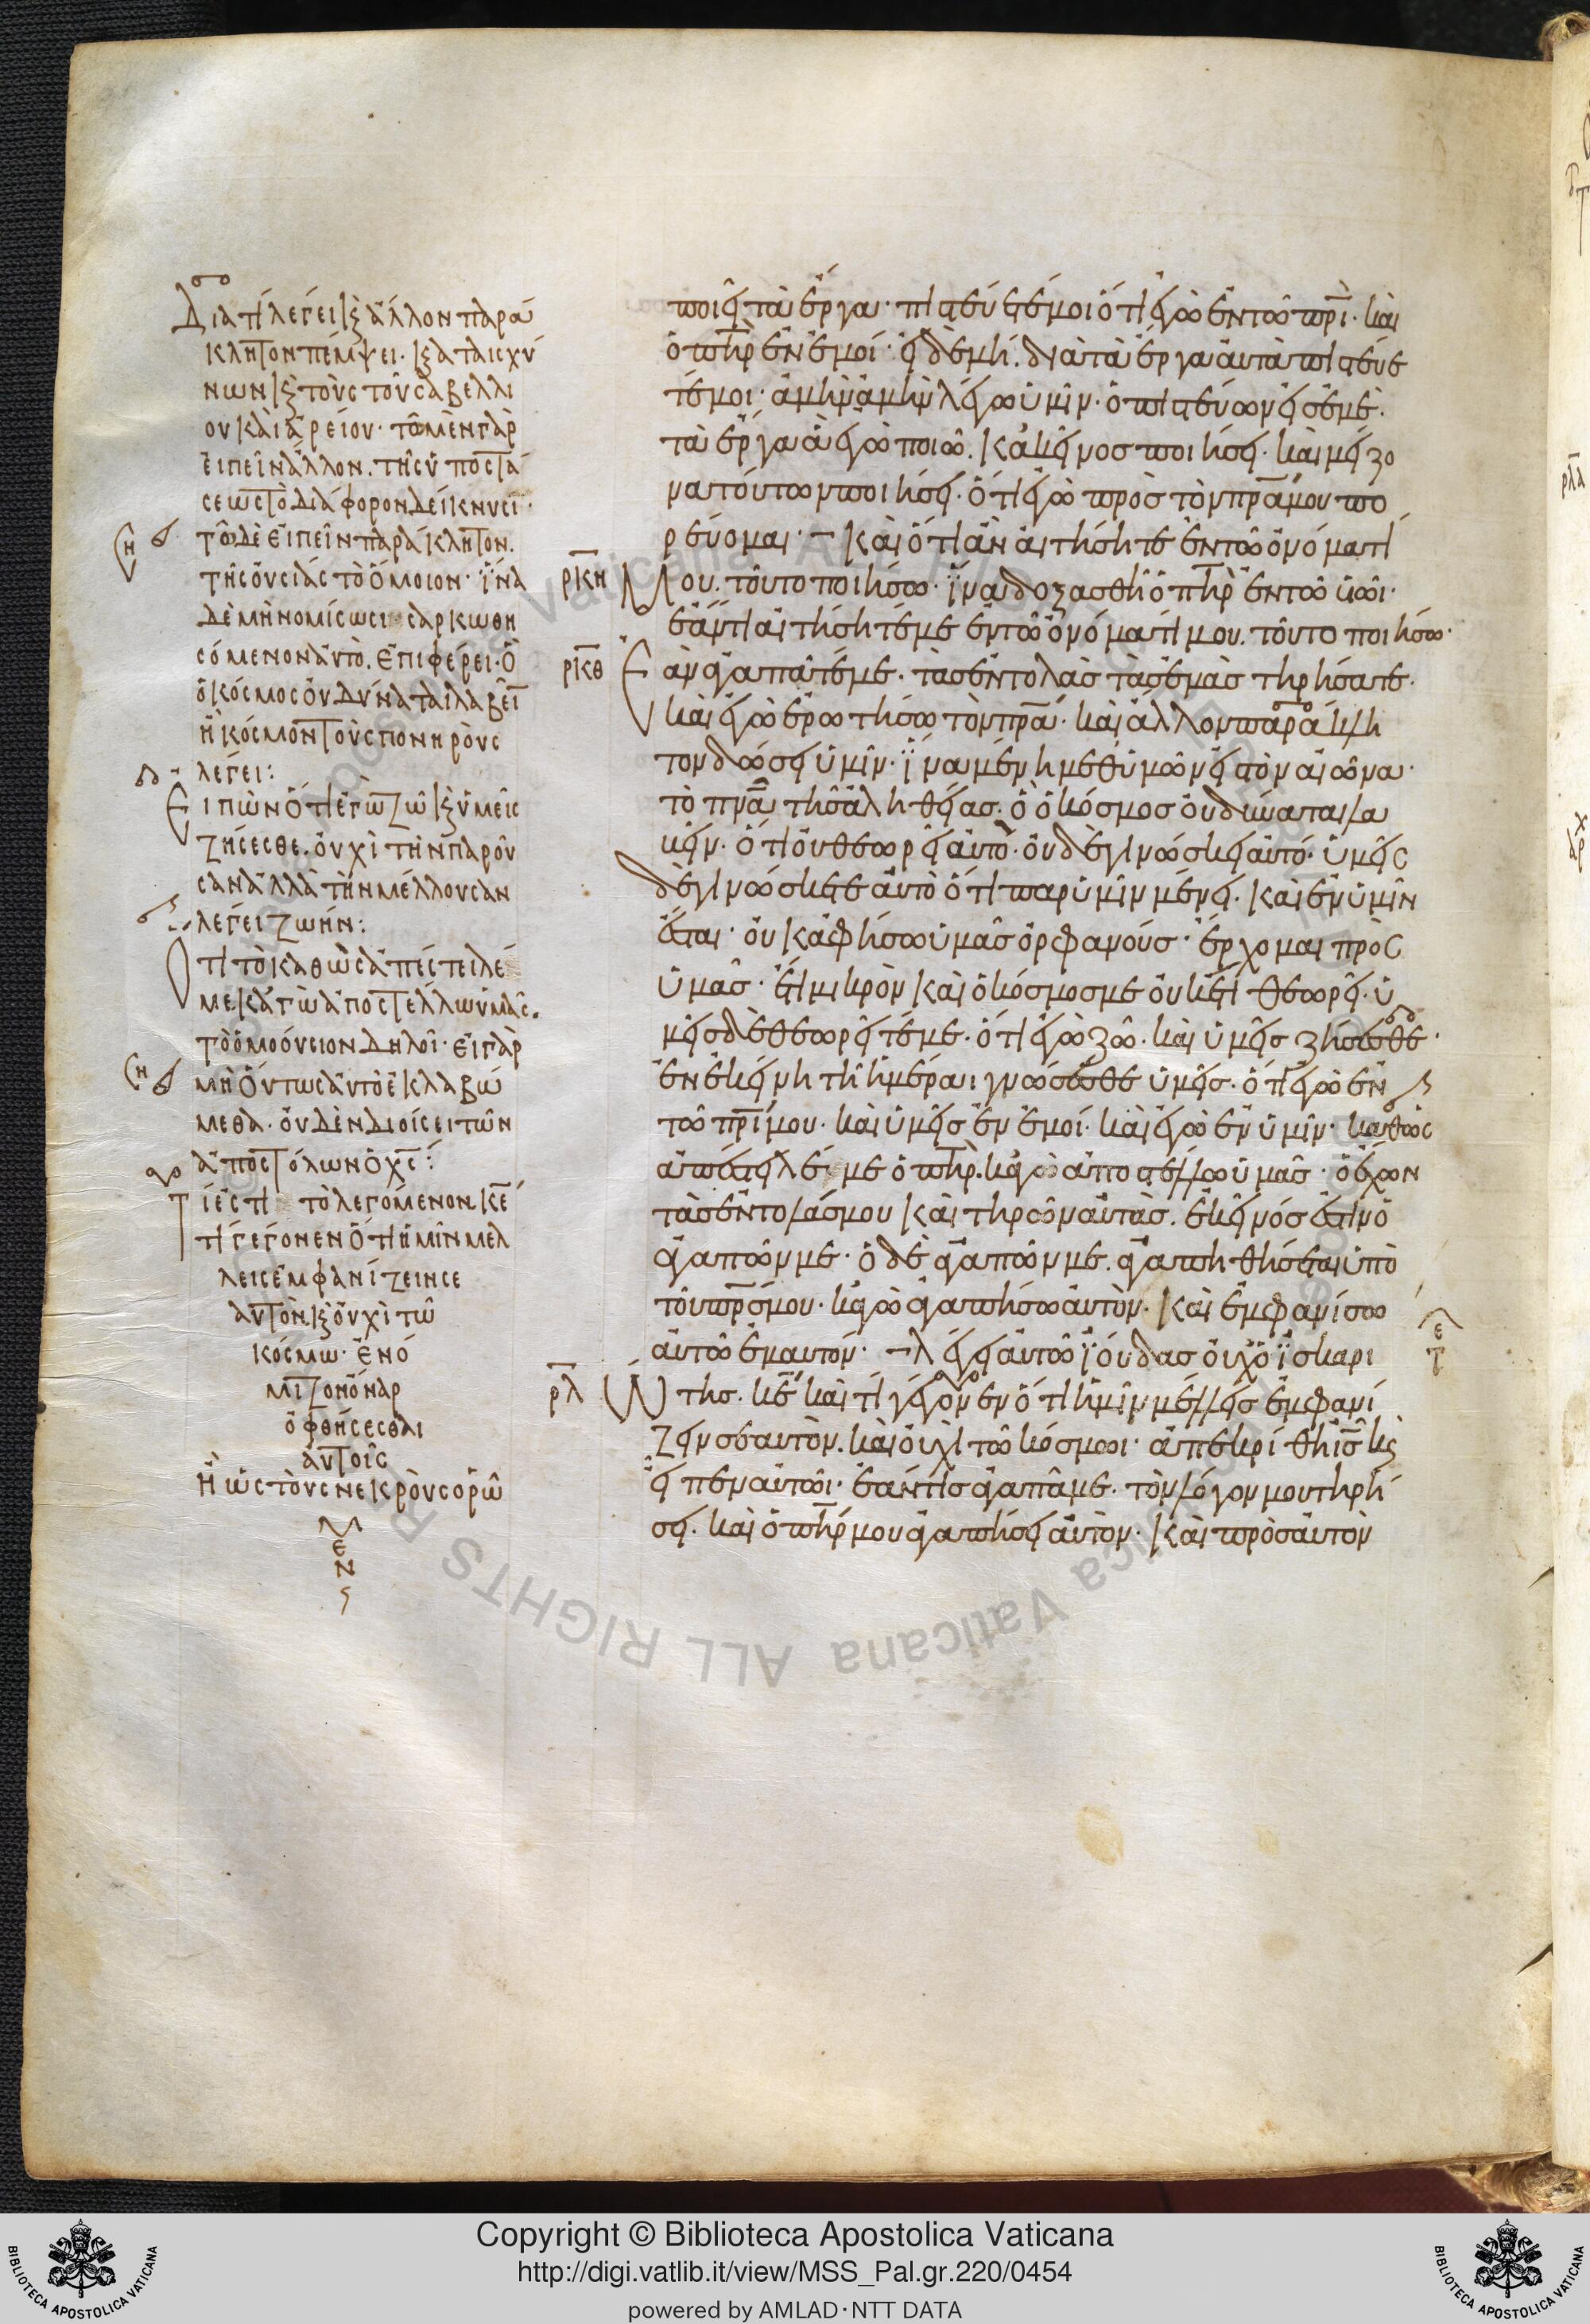 Διατί λέγει κ(αὶ) ἄλλον παρά
κλητον πέμψει· κ(αὶ) καταισχύ
νων κ(αὶ) τοὺς τοῦ σαβελλί
ου καὶ ἀρείου· τῶ μὲν γὰρ
εἰπεῖν ἄλλον. τῆς ὑποστά
σεως τὸ διάφορον δείκνυσι·
τῶ δὲ εἰπεῖν παράκλητον.
τῆς οὐσίας τὸ ὅμοιον· ἵνα
δὲ μὴ νομίσωσι σαρκωθη
σόμενον αὐτὸ. ἐπιφέρει· ὃ
ὁ κόσμος οὐ δύναται λαβεῖ
ἢ κόσμον τοὺς πονηροὺς
λέγει:
Εἰπὼν ὅτι ἐγὼ ζῶ κ(αὶ) ὑμεῖς
ζήσεσθε. οὐχὶ τὴν παροῦ
σαν ἀλλὰ τὴν μέλλουσαν
λέγει ζωήν:
Ὅτι τὸ καθὼς ἀπέστειλέ
με κἀγὼ ἀποστέλλω ὑμᾶς.
τὸ ὁμοούσιον δηλοῖ· εἰ γὰρ
μὴ οὕτως αὐτὸ ἐκλαβώ
μεθα. οὐδὲν διοίσει τῶν
ἀποστόλων ὁ χς:
Τί ἐστι τὸ λεγόμενον. κε
τί γέγονεν ὅτι ἡμῖν μέλ
λεις ἐμφανίζειν σε
αυτὸν. κ(αὶ) οὐχὶ τῶ
κόσμω· ἐνό
μιζον ὄναρ
ὀφθήσεσθαι
αὐτοῖς
ἢ ὡς τοὺς νεκροὺς ὁρῶ
μεν
ποιεῖ τὰ ἔργα· πιστεύετέ μοι ὅτι ἐγὼ ἐν τῶ πρι· καὶ
ὁ πηρ ἐν ἐμοί· εἰ δὲ μή. διὰ τὰ ἔργα αὐτὰ πιστεύε
τέ μοι· ἀμὴν ἀμὴν λέγω ὑμῖν· ὁ πιστεύων εἰς ἐμὲ.
τὰ ἔργα ἃ ἐγὼ ποιῶ. κἀκεῖνος ποιήσει· καὶ μείζο
να τούτων ποιήσει· ὅτι ἐγὼ πρὸς τὸν πρα μου πο
ρεύομαι· καὶ ὅτι ἂν αἰτήσητε ἐν τῶ ὀνόματί
ρκη Μου. τοῦτο ποιήσω· ἵνα δοξασθῆ ὁ πηρ ἐν τῶ υἱῶι·
ἐάν τι αἰτήσητέ με ἐν τῶ ὀνόματί μου. τοῦτο ποιήσω·
ρκθ Ἐὰν ἀγαπᾶτέ με. τὰς ἐντολὰς τὰς ἐμὰς τηρήσατε.
καὶ ἐγὼ ἐρωτήσω τὸν πρα· καὶ ἄλλον παράκλη
τον δώσει ὑμῖν· ἵνα μένη μεθ ὑμῶν εἰς τὸν αἰῶνα·
τὸ πνα τῆς ἀληθείας· ὃ ὁ κόσμος οὐ δύναται λα
βεῖν· ὅτι οὐ θεωρεῖ αὐτὸ· οὐδὲ γινώσκει αὐτό· ὑμεῖς
δὲ γινώσκετε αὐτὸ ὅτι παρ ὑμῖν μένει. καὶ ἐν ὑμῖν
ἔσται· οὐκ ἀφήσω ὑμᾶς ὀρφανούς· ἔρχομαι πρὸς
ὑμᾶς· ἔτι μικρὸν καὶ ὁ κόσμος με οὐκέτι θεωρεῖ· ὑ
μεῖς δὲ θεωρεῖτέ με· ὅτι ἐγὼ ζῶ. καὶ ὑμεῖς ζήσεσθε·
ἐν ἐκείνη τῆ ἡμέραι γνώσεσθε ὑμεῖς· ὅτι ἐγὼ ἐν
τῶ πρι μου· καὶ ὑμεῖς ἐν ἐμοί· καὶ ἐγὼ ἐν ὑμῖν· καθὼς
ἀπέστειλέ με ὁ πηρ. κἀγὼ ἀποστέλλω ὑμᾶς· ὁ ἔχων
τὰς ἐντολάς μου καὶ τηρῶν αὐτὰς. ἐκεῖνός ἐστιν ὁ
ἀγαπῶν με· ὁ δὲ ἀγαπῶν με. ἀγαπηθήσεται ὑπὸ
τοῦ πρς μου· κἀγὼ ἀγαπήσω αὐτὸν· καὶ ἐμφανίσω
αὐτῶ ἐμαυτόν· λέγει αὐτῶ ἰούδας οὐχ ὁ ἰσκαρι
ρλ ώτης. κε καὶ τί γέγονεν ὅτι ἡμῖν μέλλεις ἐμφανί
ζειν σεαυτὸν. καὶ οὐχὶ τῶ κόσμωι· ἀπεκρίθη ις κ(αὶ)
εἶπεν αὐτῶι· ἐάν τις ἀγαπᾶ με. τὸν λόγον μου τηρή
σει. καὶ ὁ πηρ μου ἀγαπήσει αὐτὸν· καὶ πρὸς αὐτὸν
Copyright © Biblioteca Apostolica Vaticana
http://digi.vatlib.it/view/MSS_Pal.gr.220/0454
powered by AMLAD·NTT DATA
BIBLIOTECA APOSTOLICA VATICANA
BIBLIOTECA APOSTOLICA VATICANA